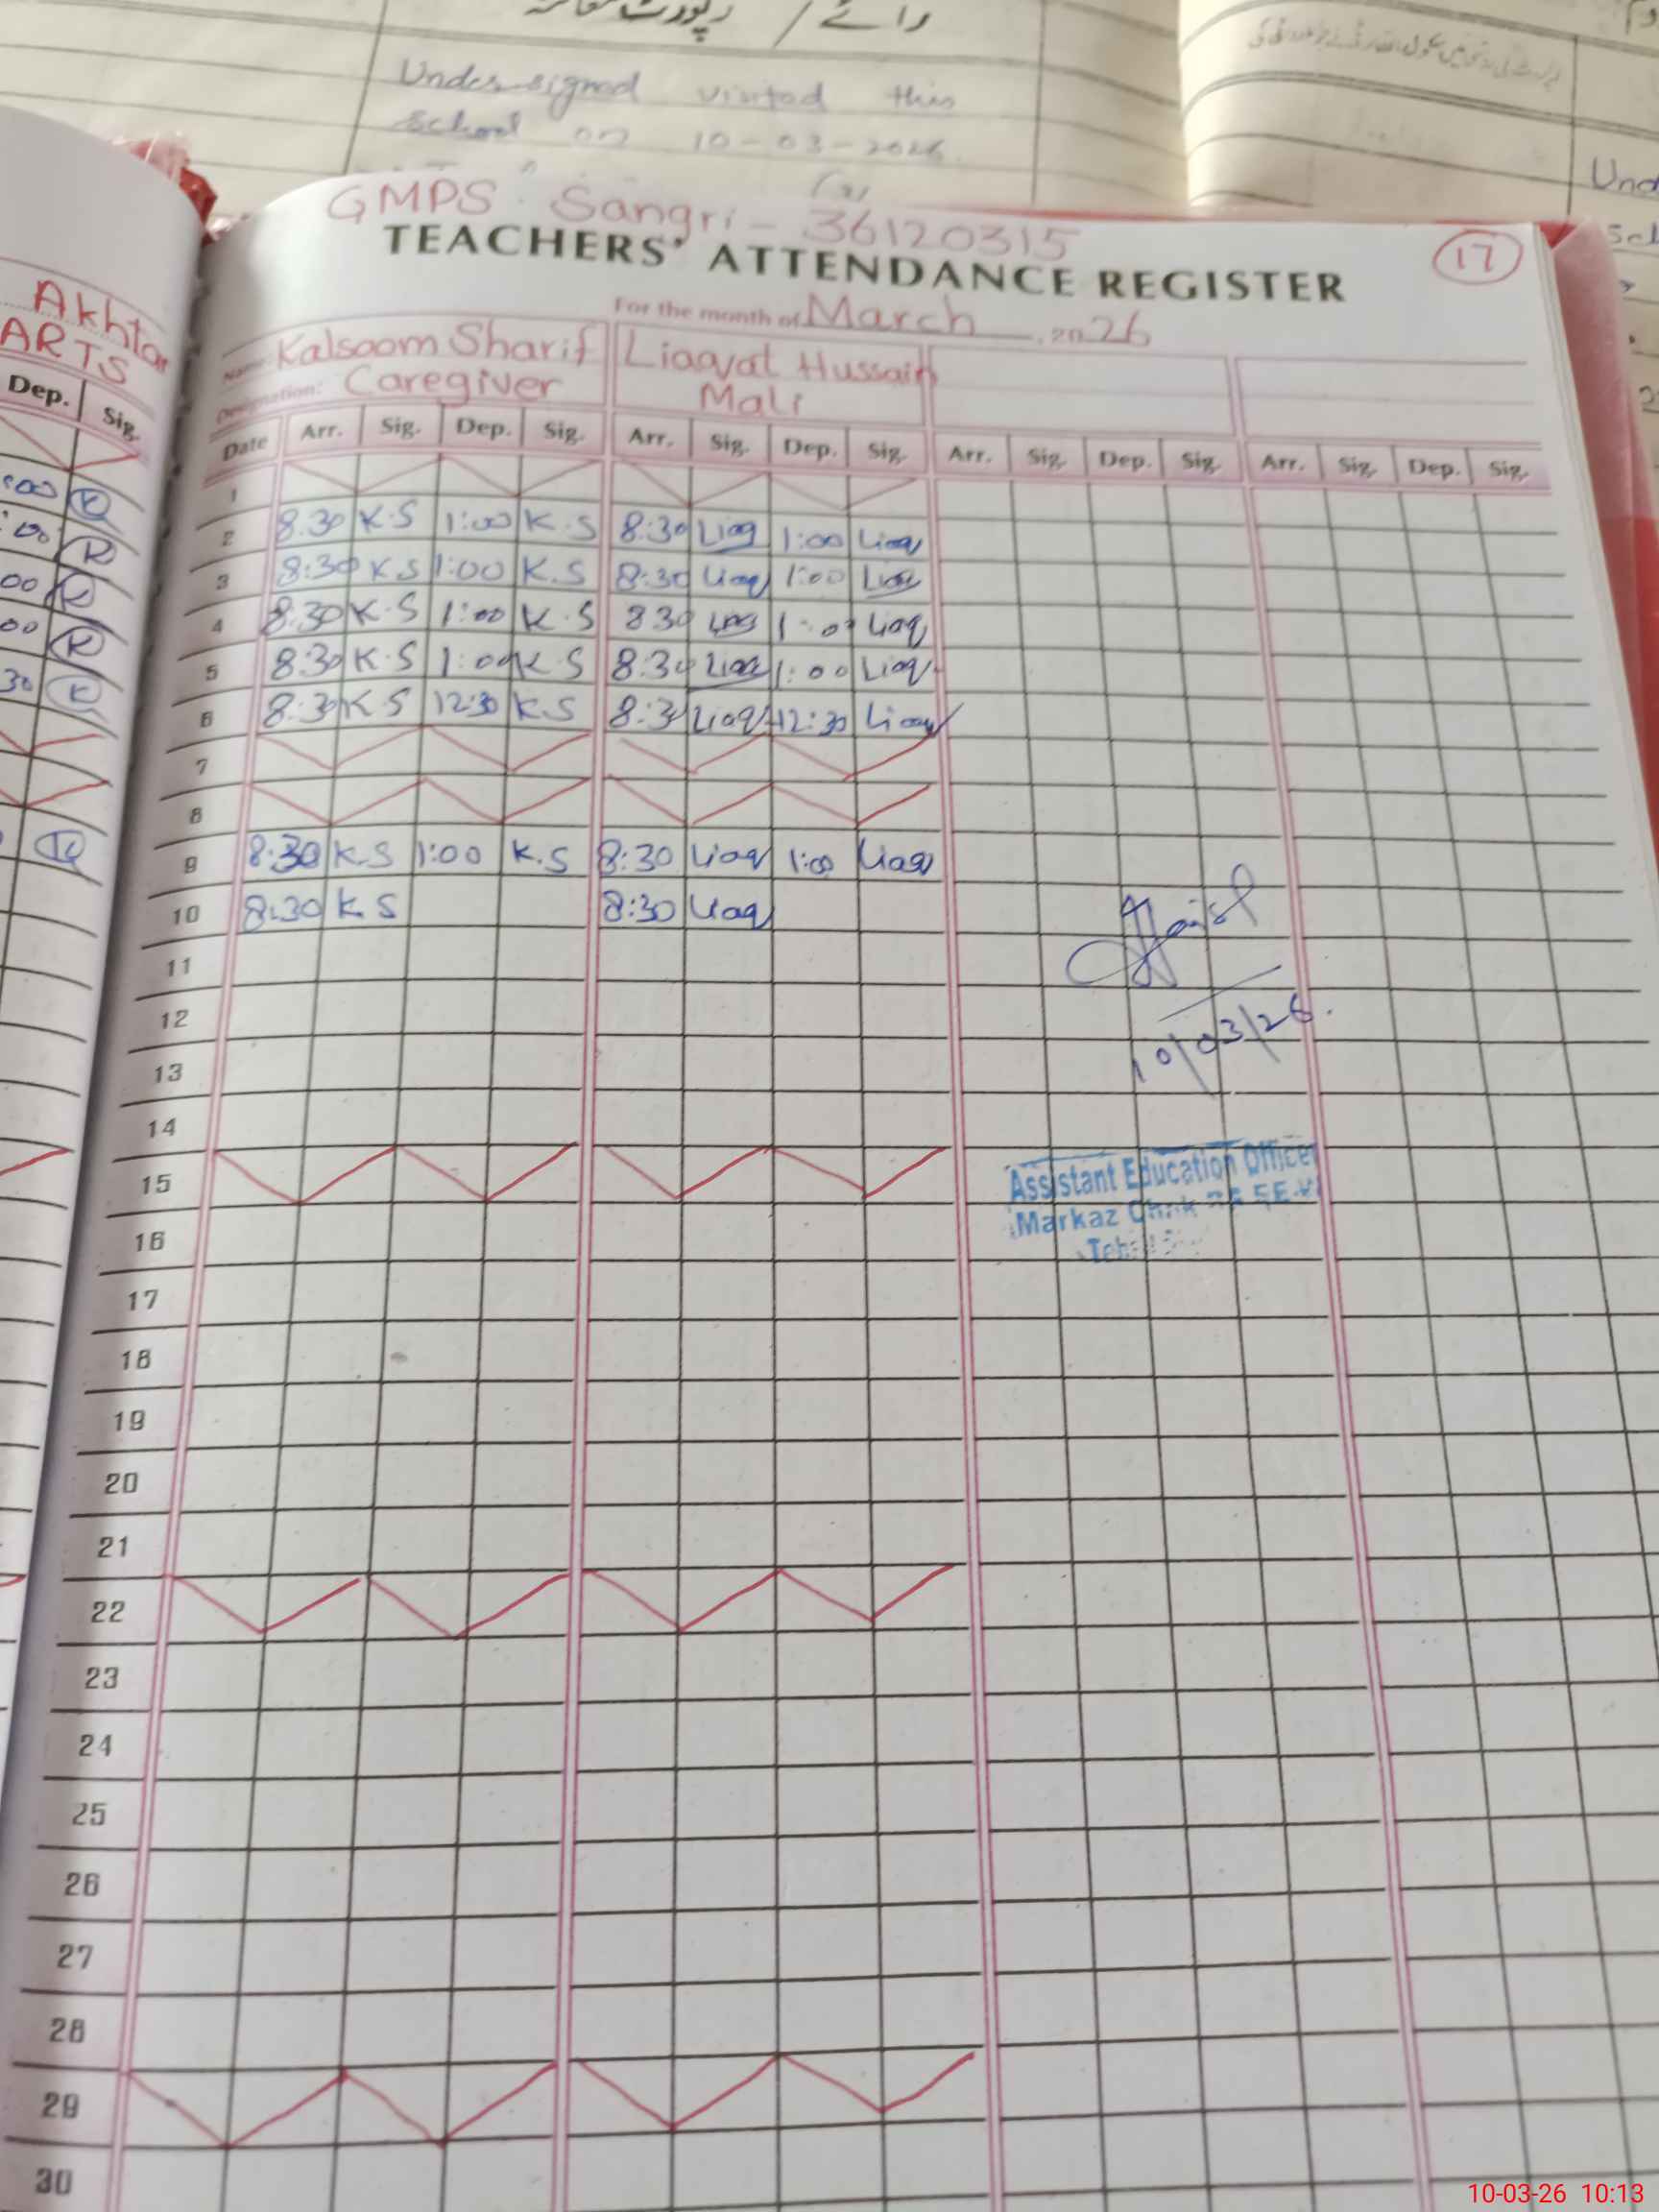 رائے / رپورٹ معائنہ
Undersigned visited this
School on 10-03-2026
Und
Sch
GMPS. Sangri - 36120315
TEACHERS' ATTENDANCE REGISTER
17
For the month of March, 2026
Akhtar
ARTS
Dep. Sig.
Name: Kalsoom Sharif Liaqat Hussain
Designation: Caregiver Mali
Date Arr. Sig. Dep. Sig. Arr. Sig. Dep. Sig. Arr. Sig. Dep. Sig. Arr. Sig. Dep. Sig.
1
2 8.30 K.S 1:00 K.S 8:30 Liaq 1:00 Liaq
3 8:30 K S 1:00 K.S 8:30 Liaq 1:00 Liaq
4 8:30 K.S 1:00 K.S 8 30 Liaq 1:00 Liaq
5 8:30 K.S 1:00 K.S 8:30 Liaq 1:00 Liaq
6 8:30 K S 12:30 K.S 8:30 Liaq 12:30 Liaq
7
8
9 8:30 K.S 1:00 K.S 8:30 Liaq 1:00 Liaq
10 8:30 K S 8:30 Liaq
11
12
10/03/26.
13
14
15
Assistant Education Officer
Markaz Chak
16
17
18
19
20
21
22
23
24
25
26
27
28
29
30
10-03-26 10:13